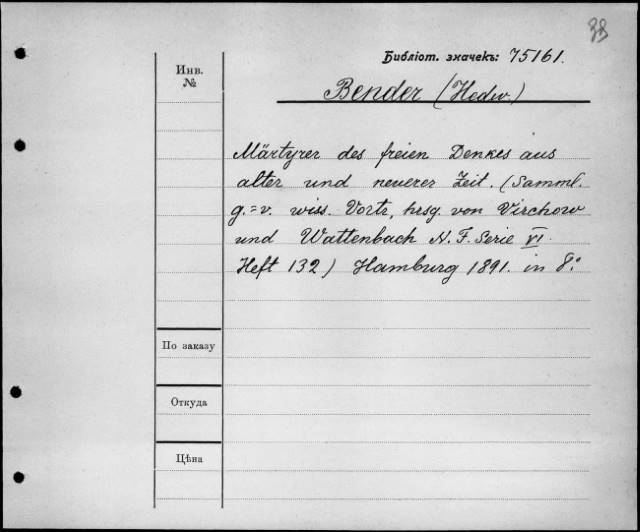 Библіот. значекъ: 75161.
Инв.
№
Bender (Hedw.)
Märtyrer des freien Denkes aus
alter und neuerer Zeit. (Samml.
g.=v. wiss. Vortr, hrsg. von Virchow
und Wattenbach N. F. Serie VI.
Heft 132) Hamburg 1891. in 8º
По заказу
Откуда
Цѣна